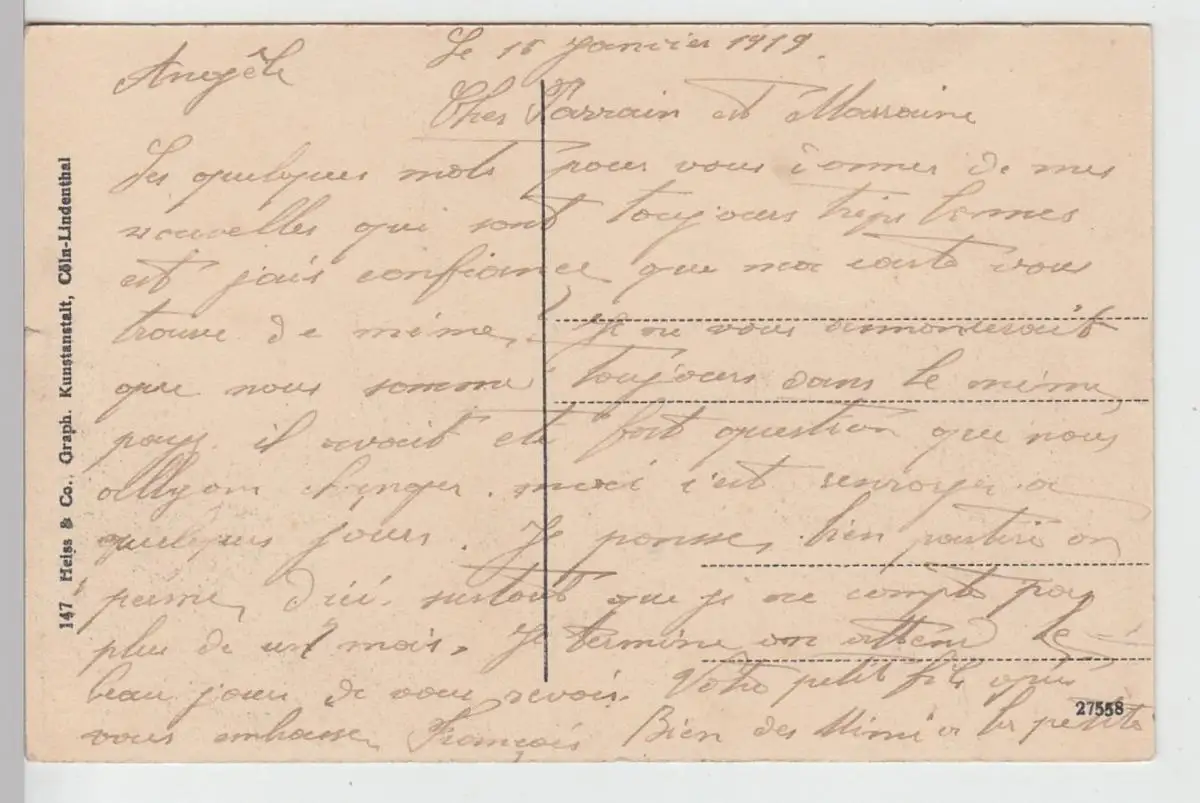 Angèle
Le 15 janvier 1919.
Cher Parrain et Marraine
Ses quelques mots pour vous donner de mes
nouvelles qui sont toujours très bonnes
et jais confiance que ma carte vous
trouve de même, Je ne vous
que nous somme toujours dans le même
pays il avait eté fort question que nous
changer. c'est a
quelques jours. Je bien
d'ici. surtout que je ne compte pas
plus de un mois. Je termine on attend le
beau jour de vous revoir. Votre petit fils qui
vous embrasse François Bien des Mimi a la petite
147 Heiss & Co., Graph. Kunstanstalt, Cöln-Lindenthal
27558